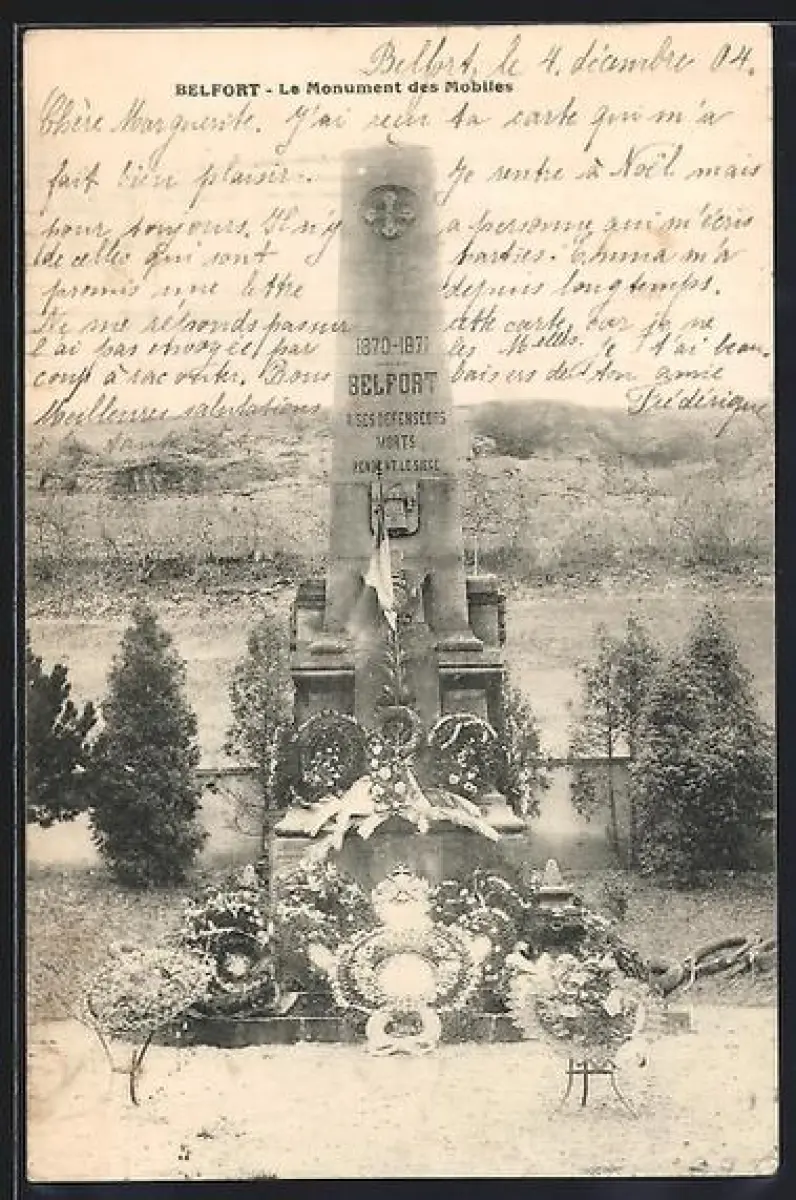 Belfort, le 4. décembre 04.
BELFORT - Le Monument des Mobiles
Chère Marguerite. J'ai reçu ta carte qui m'a
fait bien plaisir. Je rentre à Noël mais
pour toujours. Il n'y a personne qui m'écris
de celles qui sont parties. Emma m'a
promis une lettre depuis longtemps.
Ne me réponds pas sur cette carte, car je ne
l'ai pas envoyée par les Melles. Je t'ai beau-
coup à raconter. Bons baisers de ton amie
Meilleures salutations Frédérique
à tante
1870-1871
BELFORT
A SES DEFENSEURS
MORTS
PENDANT LE SIEGE